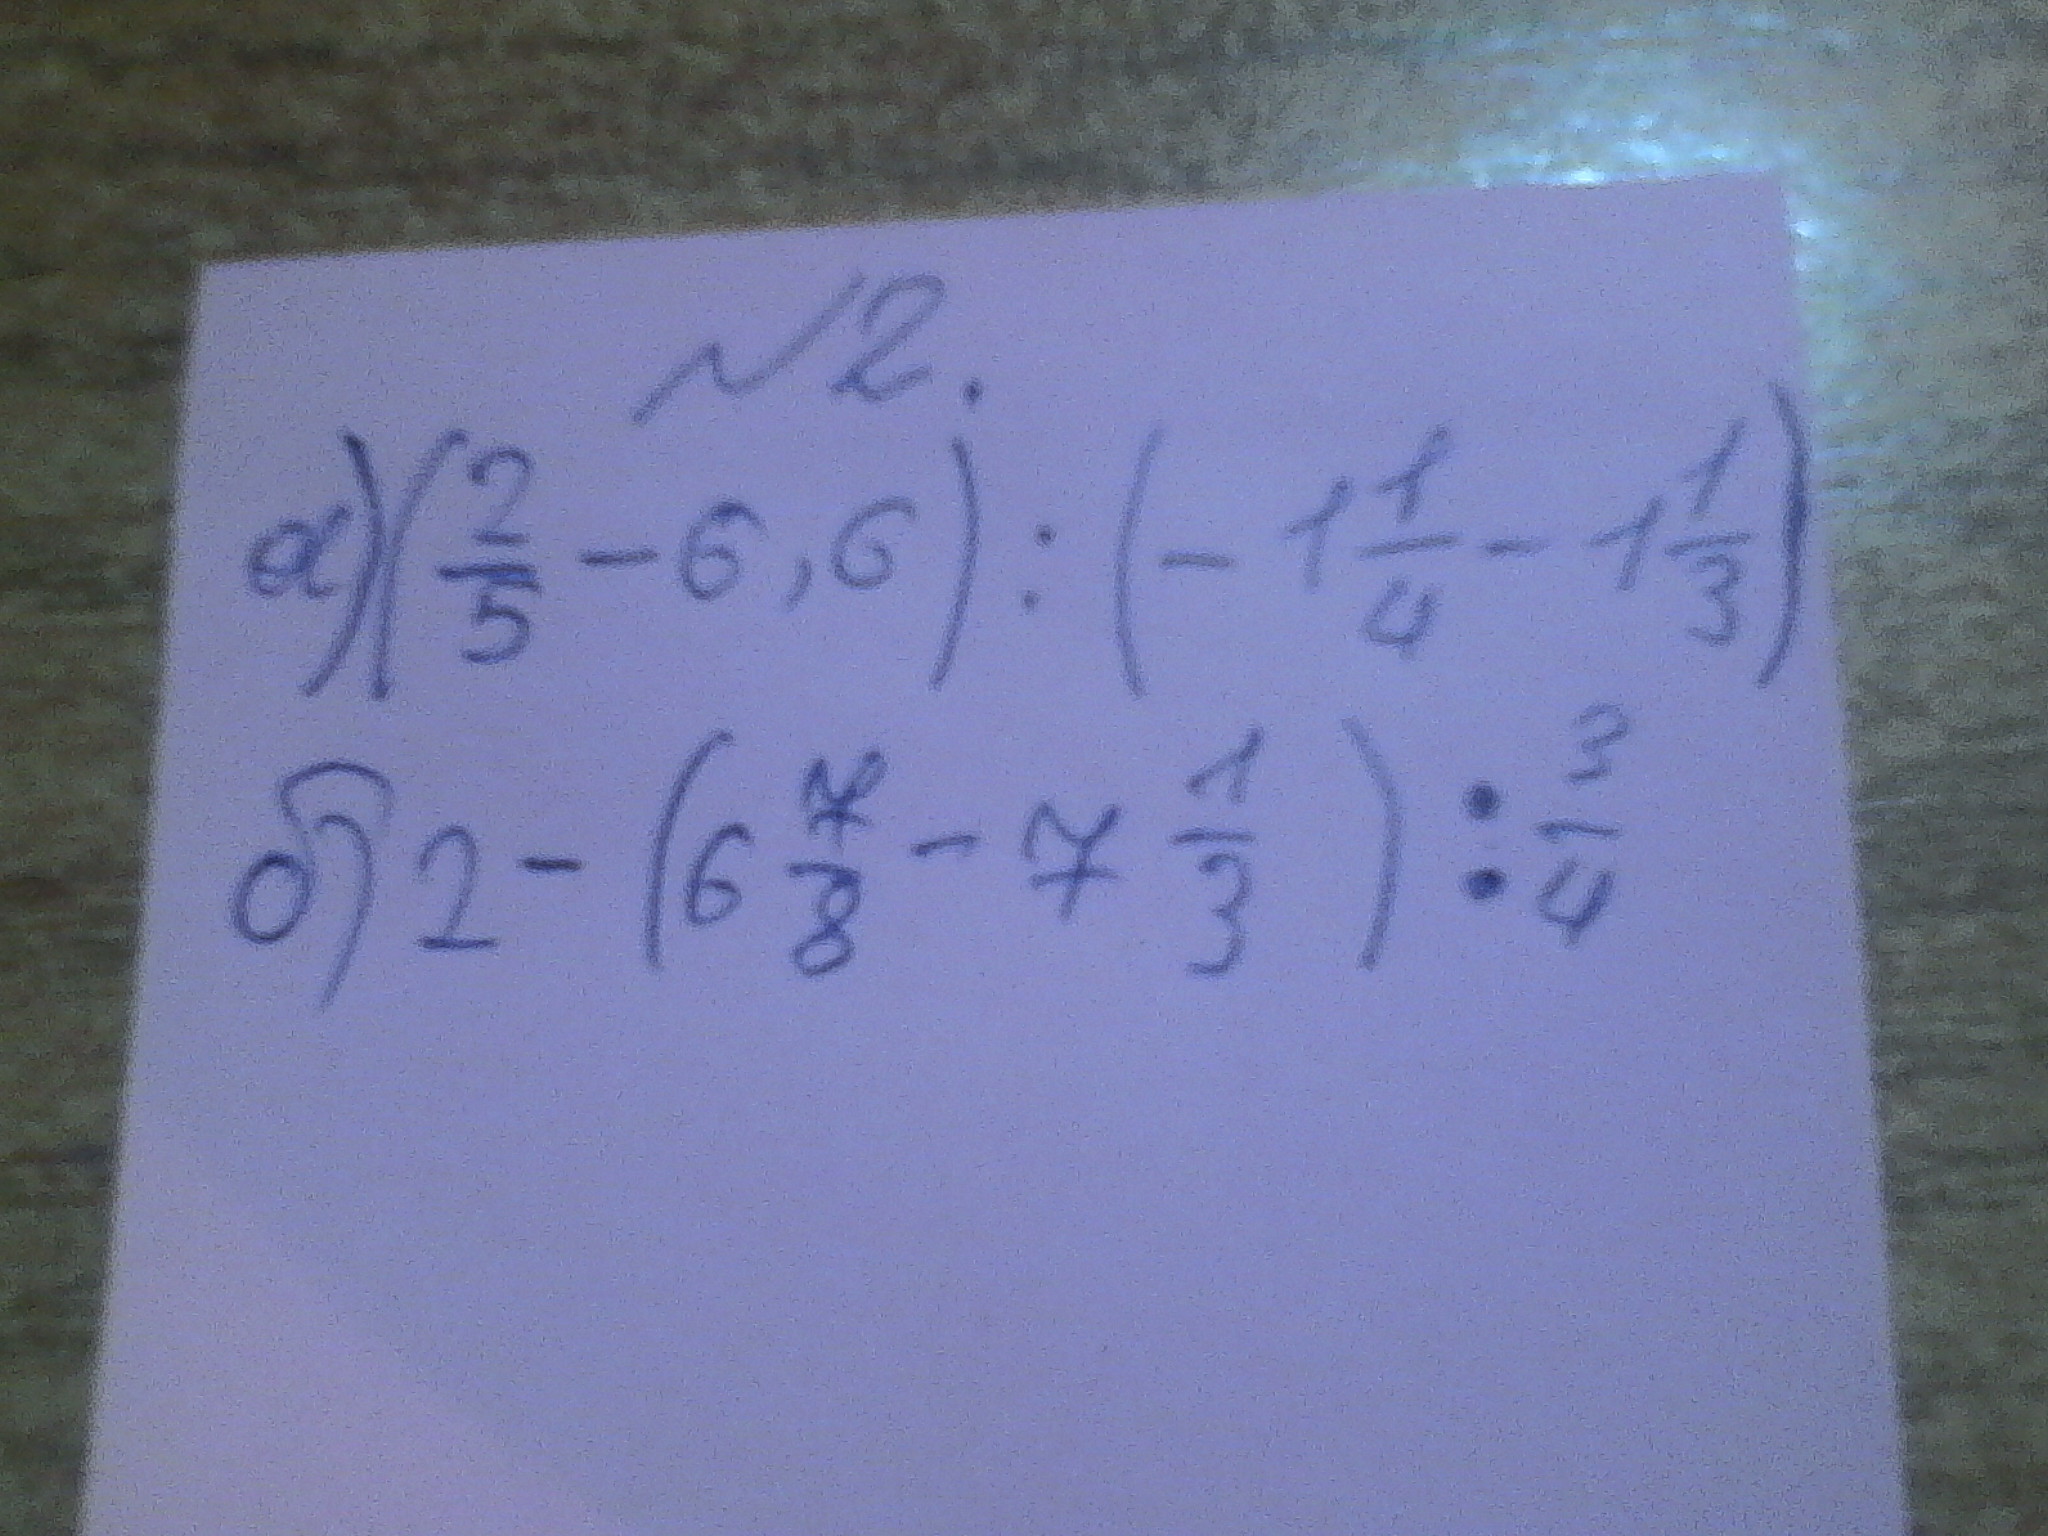 №2.
а) (2/5 - 6,6) : (- 1 1/4 - 1 1/3)
б) 2 - (6 7/8 - 7 1/3) : 3/4